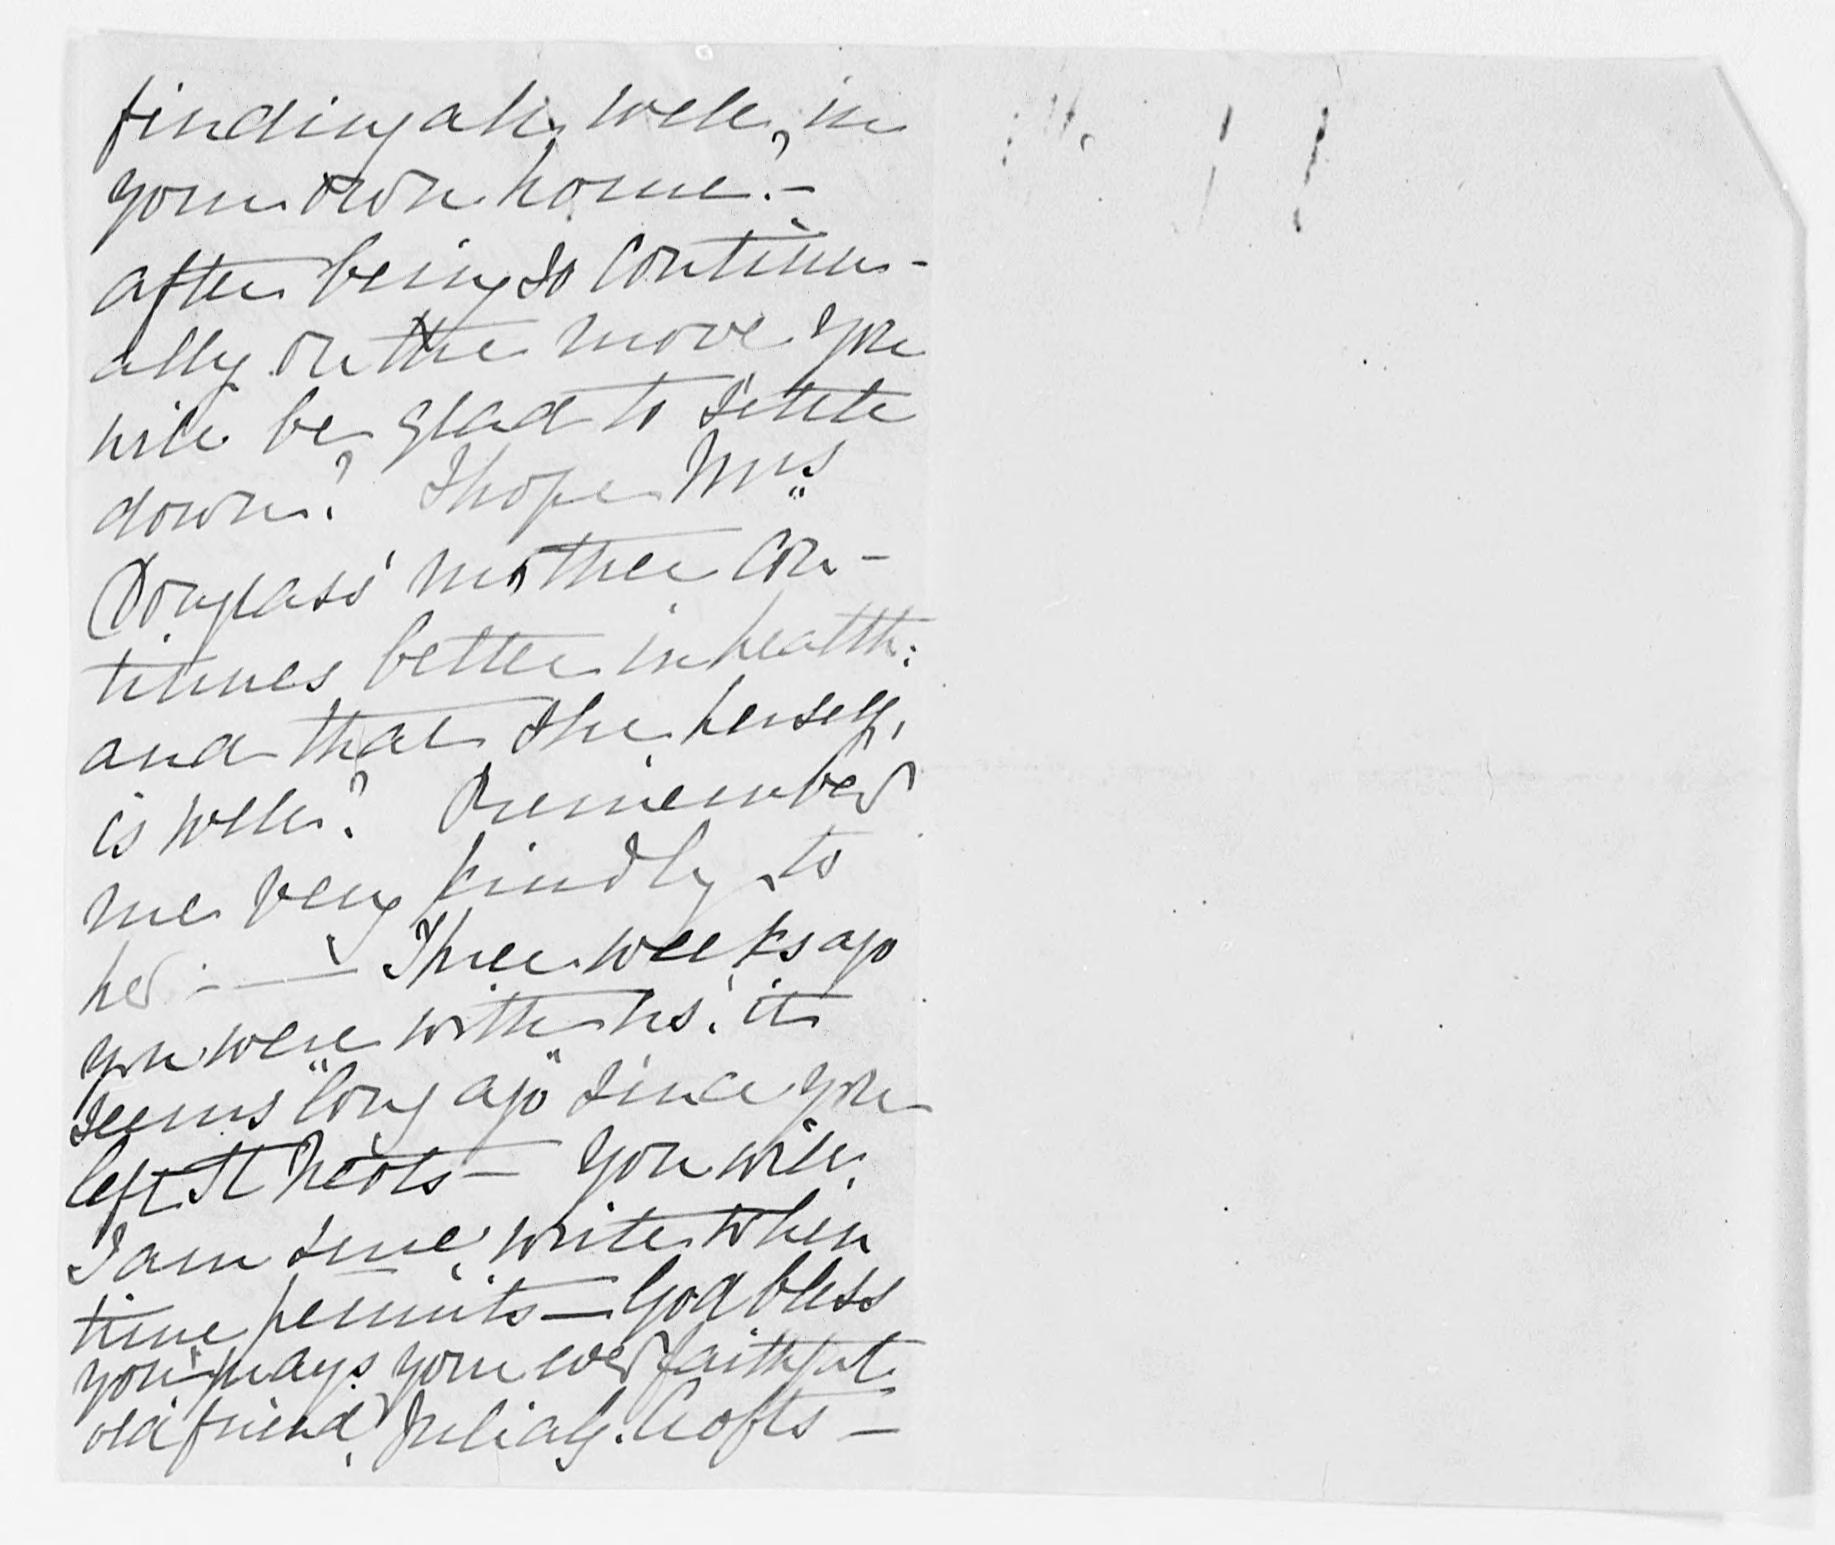 finding all, well, in
your own home?—
after being so continu-
ally on the move you
will be glad to settle
down? I hope Mrs
Douglass' mother con-
tinues better in health:
and that she herself,
is well? Remember
me very kindly to
her — Three weeks ago
you were with us! it
seems "long ago" since you
left St Neots — You will,
I am sure, write when
time permits — God bless
you always your ever faithful
old friend, Julia G. Crofts —